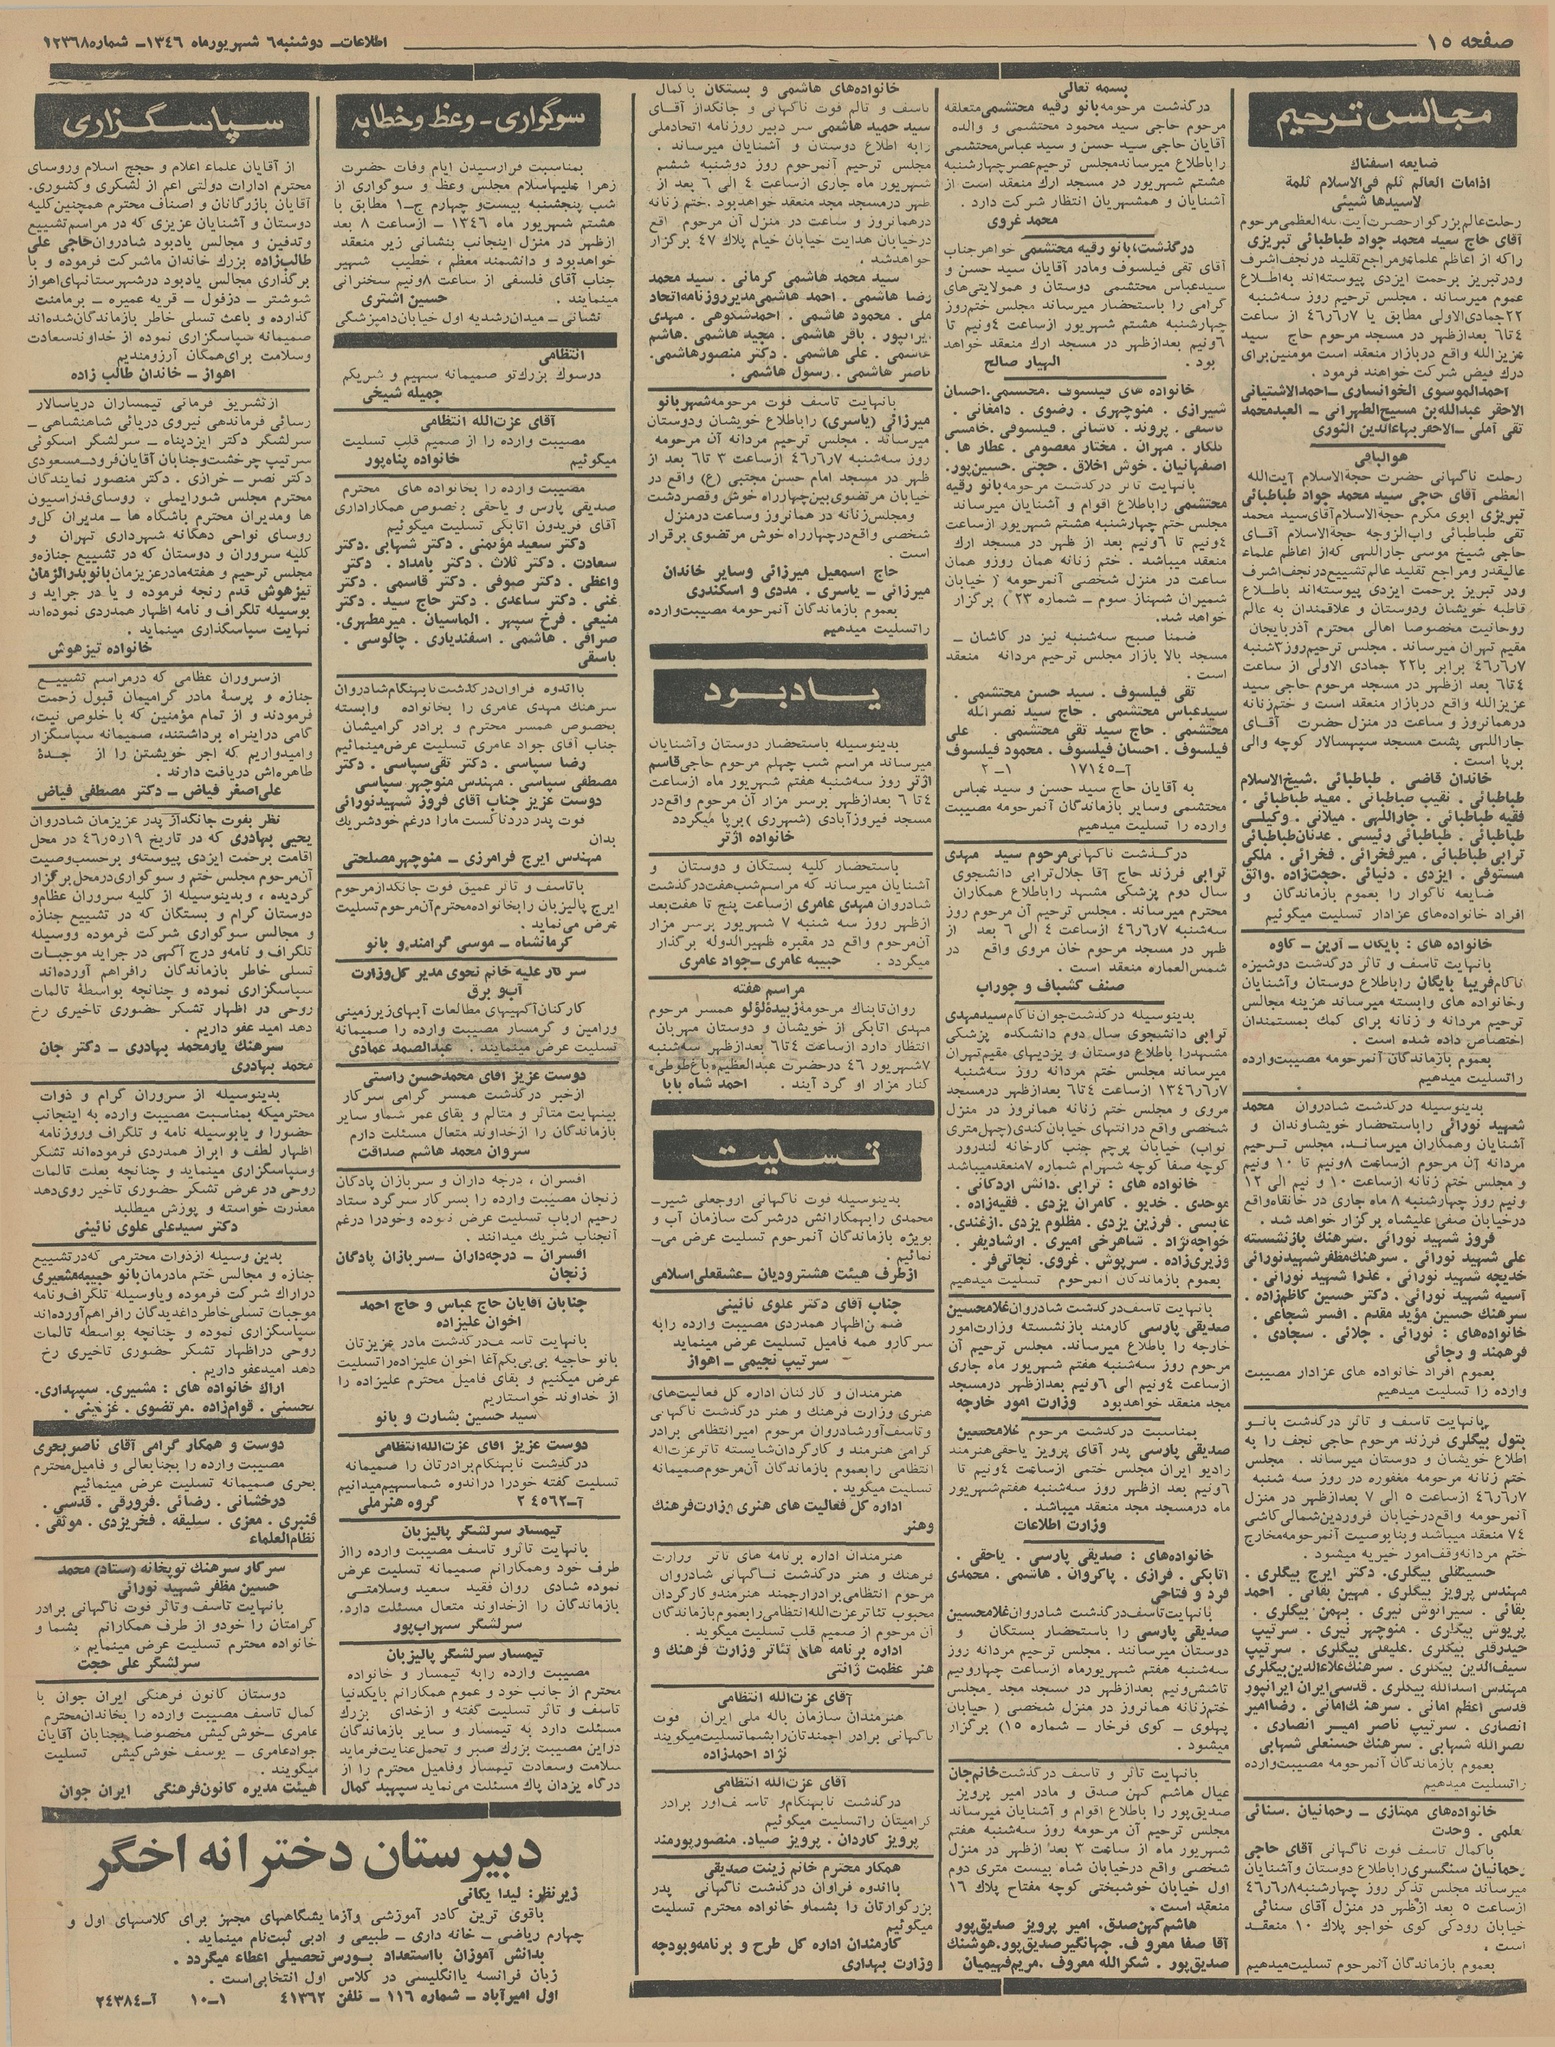 صفحه ۱۵
اطلاعات ـ دوشنبه ۶ شهریورماه ۱۳۴۶ ـ شماره ۱۲۳۶۸
مجالس ترحیم
ضایعه اسفناك
اذامات العالم ثلم فی‌الاسلام ثلمة
لاسیدها شیئی
رحلت عالم بزرگوار حضرت آیت‌الله‌العظمی مرحوم
آقای حاج سید محمد جواد طباطبائی تبریزی
راکه از اعاظم علماء و مراجع تقلید در نجف اشرف
ودر تبریز برحمت ایزدی پیوسته‌اند باطلاع
عموم میرساند . مجلس ترحیم روز سه‌شنبه
۲۲ جمادی‌الاولی مطابق با ۴۶٫۶٫۷ از ساعت
۴ تا ۶ بعدازظهر در مسجد مرحوم حاج سید
عزیزالله واقع در بازار منعقد است مومنین برای
درك فیض شرکت خواهند فرمود .
احمدالموسوی الخوانساری ـ احمدالاشتیانی
الاحقر عبدالله بن مسیح‌الطهرانی ـ العبدمحمد
تقی آملی ـ الاحقر بهاءالدین النوری
هوالباقی
رحلت ناگهانی حضرت حجةالاسلام آیت‌الله
العظمی آقای حاجی سید محمد جواد طباطبائی
تبریزی ابوی مکرم حجةالاسلام آقای سید محمد
تقی طباطبائی واب‌الزوجه حجةالاسلام آقای
حاجی شیخ موسی جاراللهی که از اعاظم علماء
عالیقدر ومراجع تقلید عالم تشییع در نجف اشرف
ودر تبریز برحمت ایزدی پیوسته‌اند باطلاع
قاطبه خویشان ودوستان و علاقمندان به عالم
روحانیت مخصوصا اهالی محترم آذربایجان
مقیم تهران میرساند . مجلس ترحیم روز ۳شنبه
۴۶٫۶٫۷ برابر با ۲۲ جمادی الاولی از ساعت
۴ تا ۶ بعدازظهر در مسجد مرحوم حاجی سید
عزیزالله واقع در بازار منعقد است و ختم زنانه
درهمانروز و ساعت در منزل حضرت آقای
جاراللهی پشت مسجد سپهسالار کوچه والی
برپا است .
خاندان قاضی . طباطبائی . شیخ‌الاسلام
طباطبائی . نقیب طباطبائی . مفید طباطبائی .
فقیه طباطبائی . جاراللهی . میلانی . وکیلی
طباطبائی . طباطبائی رئیسی . عدنان طباطبائی
ترابی طباطبائی . میرفخرائی . فخرائی . ملکی
مستوفی . ایزدی . دنیائی . حجت‌زاده . واثق
ضایعه ناگوار را بعموم بازماندگان و
افراد خانواده‌های عزادار تسلیت میگوئیم
خانواده های : بایگان ـ آرین ـ کاوه
بانهایت تاسف و تاثر درگذشت دوشیزه
ناکام فریبا بایگان راباطلاع دوستان وآشنایان
وخانواده های وابسته میرساند هزینه مجالس
ترحیم مردانه و زنانه برای کمك بمستمندان
اختصاص داده شده است .
بعموم بازماندگان آنمرحومه مصیبت‌وارده
راتسلیت میدهیم
بدینوسیله درگذشت شادروان محمد
شهید نورائی راباستحضار خویشاوندان و
آشنایان وهمکاران میرساند . مجلس ترحیم
مردانه آن مرحوم ازساعت ۸ونیم تا ۱۰ ونیم
و مجلس ختم زنانه ازساعت ۱۰ و نیم الی ۱۲
ونیم روز چهارشنبه ۸ ماه جاری در خانقاه واقع
درخیابان صفی علیشاه برگزار خواهد شد .
فروز شهید نورائی . سرهنك بازنشسته
علی شهید نورائی . سرهنك مظفر شهیدنورائی
خدیجه شهید نورائی . عذرا شهید نورائی .
آسیه شهید نورائی . دکتر حسین کاظم‌زاده .
سرهنك حسین مؤید مقدم . افسر شجاعی .
خانواده‌های : نورائی . جلائی . سجادی .
فرهمند و رجائی
بعموم افراد خانواده های عزادار مصیبت
وارده را تسلیت میدهیم
بانهایت تاسف و تاثر درگذشت بانو
بتول بیگلری فرزند مرحوم حاجی نجف را به
اطلاع خویشان و دوستان میرساند . مجلس
ختم زنانه مرحومه مغفوره در روز سه شنبه
۴۶٫۶٫۷ ازساعت ۵ الی ۷ بعدازظهر در منزل
آنمرحومه واقع درخیابان فروردین شمالی کاشی
۷۴ منعقد میباشد وبنابوصیت آنمرحومه مخارج
ختم مردانه وقف امور خیریه میشود .
حسینقلی بیگلری . دکتر ایرج بیگلری .
مهندس پرویز بیگلری . مهین بقائی . احمد
بقائی . سیرانوش نیری . بهمن بیگلری .
پریوش بیگلری . منوچهر نیری . سرتیپ
حیدرقلی بیگلری . علیقلی بیگلری . سرتیپ
سیف‌الدین بیگلری . سرهنك علاءالدین بیگلری
مهندس اسدالله بیگلری . قدسی ایران ایرانپور
قدسی اعظم امانی . سرهنك امانی . رضا امیر
انصاری . سرتیپ ناصر امیر انصاری .
نصرالله شهابی . سرهنك حسنعلی شهابی
بعموم بازماندگان آنمرحومه مصیبت‌وارده
راتسلیت میدهیم
خانواده‌های ممتازی ـ رحمانیان . سنائی
معلمی . وحدت
باکمال تاسف فوت ناگهانی آقای حاجی
رحمانیان سنگسری راباطلاع دوستان وآشنایان
میرساند مجلس تذکر روز چهارشنبه ۴۶٫۶٫۸
ازساعت ۵ بعد ازظهر در منزل آقای سنائی
خیابان رودکی کوی خواجو پلاك ۱۰ منعقد
است .
بعموم بازماندگان آنمرحوم تسلیت میدهیم
بسمه تعالی
درگذشت مرحومه بانو رقیه محتشمی متعلقه
مرحوم حاجی سید محمود محتشمی و والده
آقایان حاجی سید حسن و سید عباس محتشمی
راباطلاع میرساند مجلس ترحیم عصر چهارشنبه
هشتم شهریور در مسجد ارك منعقد است از
آشنایان و همشهریان انتظار شرکت دارد .
محمد غروی
درگذشت بانو رقیه محتشمی خواهر جناب
آقای تقی فیلسوف ومادر آقایان سید حسن و
سید عباس محتشمی دوستان و همولایتی‌های
گرامی را باستحضار میرساند مجلس ختم روز
چهارشنبه هشتم شهریور ازساعت ۴ونیم تا
۶ونیم بعدازظهر در مسجد ارك منعقد خواهد
بود . الهیار صالح
خانواده های فیلسوف . محتشمی . احسان
شیرازی . منوچهری . رضوی . دامغانی .
پروند . کاشانی . فیلسوفی . خامسی
تلکار . مهران . مختار معصومی . عطار ها .
اصفهانیان . خوش اخلاق . حجتی . حسین‌پور .
بانهایت تاثر درگذشت مرحومه بانو رقیه
محتشمی راباطلاع اقوام و آشنایان میرساند
مجلس ختم چهارشنبه هشتم شهریور ازساعت
۴ونیم تا ۶ونیم بعد از ظهر در مسجد ارك
منعقد میباشد . ختم زنانه همان روزو همان
ساعت در منزل شخصی آنمرحومه ( خیابان
شمیران شهناز سوم ـ شماره ۲۳ ) برگزار
خواهد شد .
ضمنا صبح سه‌شنبه نیز در کاشان ـ
مسجد بالا بازار مجلس ترحیم مردانه منعقد
است .
تقی فیلسوف . سید حسن محتشمی .
سیدعباس محتشمی . حاج سید نصرالله
محتشمی . حاج سید تقی محتشمی . علی
فیلسوف . احسان فیلسوف . محمود فیلسوف
آ ـ ۱۷۱۴۵ ۱ ـ ۲
به آقایان حاج سید حسن و سید عباس
محتشمی وسایر بازماندگان آنمرحومه مصیبت
وارده را تسلیت میدهیم
درگذشت ناگهانی مرحوم سید مهدی
ترابی فرزند حاج آقا جلال ترابی دانشجوی
سال دوم پزشکی مشهد راباطلاع همکاران
محترم میرساند . مجلس ترحیم آن مرحوم روز
سه‌شنبه ۴۶٫۶٫۷ ازساعت ۴ الی ۶ بعد از
ظهر در مسجد مرحوم خان مروی واقع در
شمس‌العماره منعقد است .
صنف کشباف و جوراب
بدینوسیله درگذشت جوان ناکام سیدمهدی
ترابی دانشجوی سال دوم دانشکده پزشکی
مشهدرا باطلاع دوستان و یزدیهای مقیم‌تهران
میرساند مجلس ختم مردانه روز سه‌شنبه
۱۳۴۶٫۶٫۷ ازساعت ۴تا۶ بعدازظهر درمسجد
مروی و مجلس ختم زنانه همانروز در منزل
شخصی واقع درانتهای خیابان کندی(چهل‌متری
نواب) خیابان پرچم جنب کارخانه لندرور
کوچه صفا کوچه شهرام شماره ۷ منعقدمیباشد
خانواده های : ترابی . دانش اردکانی .
موحدی . خدیو . کامران یزدی . فقیه‌زاده .
عابسی . فرزین یزدی . مظلوم یزدی . ازغندی .
خواجه‌نژاد . شاهرخی امیری . ارشادیفر .
وزیری‌زاده . سرپوش . غروی . نجاتی‌فر .
بعموم بازماندگان آنمرحوم تسلیت میدهیم
بانهایت تاسف درگذشت شادروان غلامحسین
صدیقی پارسی کارمند بازنشسته وزارت‌امور
خارجه را باطلاع میرساند . مجلس ترحیم آن
مرحوم روز سه‌شنبه هفتم شهریور ماه جاری
ازساعت ۴ونیم الی ۶ونیم بعدازظهر درمسجد
مجد منعقد خواهدبود وزارت امور خارجه
بمناسبت درگذشت مرحوم غلامحسین
صدیقی پارسی پدر آقای پرویز یاحقی هنرمند
رادیو ایران مجلس ختمی ازساعت ۴ونیم تا
۶ونیم بعد ازظهر روز سه‌شنبه هفتم شهریور
ماه درمسجد مجد منعقد میباشد .
وزارت اطلاعات
خانواده‌های : صدیقی پارسی . یاحقی .
اتابکی . فرازی . پاکروان . هاشمی . محمدی
فرد و فتاحی
بانهایت تاسف درگذشت شادروان غلامحسین
صدیقی پارسی را باستحضار بستگان و
دوستان میرسانند . مجلس ترحیم مردانه روز
سه‌شنبه هفتم شهریورماه ازساعت چهارونیم
تاشش‌ونیم بعدازظهر در مسجد مجد . مجلس
ختم‌زنانه همانروز در منزل شخصی ( خیابان
پهلوی ـ کوی فرخار ـ شماره ۱۵) برگزار
میشود .
بانهایت تاثر و تاسف درگذشت خانم‌جان
عیال هاشم کهن صدق و مادر امیر پرویز
صدیق‌پور را باطلاع اقوام و آشنایان میرساند
مجلس ترحیم آن مرحومه روز سه‌شنبه هفتم
شهریور ماه از ساعت ۳ بعد ازظهر در منزل
شخصی واقع درخیابان شاه بیست متری دوم
اول خیابان خوشبختی کوچه مفتاح پلاك ۱۶
منعقد است .
هاشم‌کهن‌صدق . امیر پرویز صدیق‌پور
آقا صفا معروف . جهانگیر صدیق‌پور . هوشنك
صدیق‌پور . شکرالله معروف . مریم فهیمیان
خانواده‌های هاشمی و بستگان باکمال
تاسف و تالم فوت ناگهانی و جانگداز آقای
سید حمید هاشمی سر دبیر روزنامه اتحادملی
رابه اطلاع دوستان و آشنایان میرساند .
مجلس ترحیم آنمرحوم روز دوشنبه ششم
شهریور ماه جاری ازساعت ۴ الی ۶ بعد از
ظهر درمسجد مجد منعقد خواهدبود . ختم زنانه
درهمانروز و ساعت در منزل آن مرحوم واقع
درخیابان هدایت خیابان خیام پلاك ۴۷ برگزار
خواهدشد .
سید محمد هاشمی کرمانی . سید محمد
رضا هاشمی . احمد هاشمی مدیر روزنامه اتحاد
ملی . محمود هاشمی . احمدشکوهی . مهدی
ایرانپور . باقر هاشمی . مجید هاشمی . هاشم
هاشمی . علی هاشمی . دکتر منصور هاشمی .
ناصر هاشمی . رسول هاشمی .
بانهایت تاسف فوت مرحومه شهربانو
میرزائی (یاسری) راباطلاع خویشان ودوستان
میرساند . مجلس ترحیم مردانه آن مرحومه
روز سه‌شنبه ۴۶٫۶٫۷ ازساعت ۳ تا ۶ بعد از
ظهر در مسجد امام حسن مجتبی (ع) واقع در
خیابان مرتضوی بین چهارراه خوش وقصردشت
ومجلس زنانه در همانروز وساعت درمنزل
شخصی واقع درچهارراه خوش مرتضوی برقرار
است .
حاج اسمعیل میرزائی وسایر خاندان
میرزائی ـ یاسری . مددی و اسکندری
بعموم بازماندگان آنمرحومه مصیبت‌وارده
راتسلیت میدهیم
یادبود
بدینوسیله باستحضار دوستان وآشنایان
میرساند مراسم شب چهلم مرحوم حاجی قاسم
اژتر روز سه‌شنبه هفتم شهریور ماه ازساعت
۴ تا ۶ بعدازظهر برسر مزار آن مرحوم واقع‌در
مسجد فیروزآبادی (شهرری) برپا میگردد
خانواده اژتر
باستحضار کلیه بستگان و دوستان و
آشنایان میرساند که مراسم شب‌هفت درگذشت
شادروان مهدی عامری ازساعت پنج تا هفت‌بعد
ازظهر روز سه شنبه ۷ شهریور برسر مزار
آن‌مرحوم واقع در مقبره ظهیرالدوله برگذار
میگردد . حبیبه عامری ـ جواد عامری
مراسم هفته
روان تابناك مرحومه زبیدۀ لؤلؤ همسر مرحوم
مهدی اتابکی از خویشان و دوستان مهربان
انتظار دارد ازساعت ۴تا۶ بعدازظهر سه‌شنبه
۷شهریور ۴۶ درحضرت عبدالعظیم«باغ‌طوطی»
کنار مزار او گرد آیند . احمد شاه بابا
تسلیت
بدینوسیله فوت ناگهانی اروجعلی شیر ـ
محمدی رابهمکارانش درشرکت سازمان آب و
بویژه بازماندگان آنمرحوم تسلیت عرض می ـ
نمائیم .
ازطرف هیئت هشترودیان ـ عشقعلی اسلامی
جناب آقای دکتر علوی نائینی
ضمن اظهار همدردی مصیبت وارده رابه
سرکارو همه فامیل تسلیت عرض مینماید
سرتیپ نجیمی ـ اهواز
هنرمندان و کارکنان اداره کل فعالیت‌های
هنری وزارت فرهنك و هنر درگذشت ناگهانی
وتاسف‌آور شادروان مرحوم امیر انتظامی برادر
گرامی هنرمند و کارگردان شایسته تاتر عزت‌اله
انتظامی رابعموم بازماندگان آن‌مرحوم صمیمانه
تسلیت میگوید .
اداره کل فعالیت های هنری وزارت فرهنك
وهنر
هنرمندان اداره برنامه های تاتر وزارت
فرهنك و هنر درگذشت ناگهانی شادروان
مرحوم انتظامی برادر ارجمند هنرمند و کارگردان
محبوب تئاتر عزت‌الله انتظامی را بعموم بازماندگان
آن مرحوم از صمیم قلب تسلیت میگوید .
اداره برنامه های تئاتر وزارت فرهنك و
هنر عظمت ژانتی
آقای عزت‌الله انتظامی
هنرمندان سازمان باله ملی ایران فوت
ناگهانی برادر ارجمندتان رابشما تسلیت میگویند
نژاد احمدزاده
آقای عزت‌الله انتظامی
درگذشت نابهنگام و تاسف‌آور برادر
گرامیتان راتسلیت میگوئیم
پرویز کاردان . پرویز صیاد . منصور پورمند
همکار محترم خانم زینت صدیقی
بااندوه فراوان درگذشت ناگهانی پدر
بزرگوارتان را بشماو خانواده محترم تسلیت
میگوئیم
کارمندان اداره کل طرح و برنامه‌وبودجه
وزارت بهداری
سوگواری ـ وعظ و خطابه
بمناسبت فرارسیدن ایام وفات حضرت
زهرا علیهاسلام مجلس وعظ و سوگواری از
شب پنجشنبه بیست‌و چهارم ج ـ ۱ مطابق با
هشتم شهریور ماه ۱۳۴۶ ـ ازساعت ۸ بعد
ازظهر در منزل اینجانب بنشانی زیر منعقد
خواهدبود و دانشمند معظم ، خطیب شهیر
جناب آقای فلسفی از ساعت ۸ونیم سخنرانی
مینمایند . حسین اشتری
نشانی ـ میدان رشدیه اول خیابان دامپزشگی
انتظامی
درسوك بزرك‌تو صمیمانه سهیم و شریکم
جمیله شیخی
آقای عزت‌الله انتظامی
مصیبت وارده را از صمیم قلب تسلیت
میگوئیم خانواده پناه‌پور
مصیبت وارده را بخانواده های محترم
صدیقی پارس و یاحقی بخصوص همکاراداری
آقای فریدون اتابکی تسلیت میگوئیم
دکتر سعید مؤتمنی . دکتر شهابی . دکتر
سعادت . دکتر ثلاث . دکتر بامداد . دکتر
واعظی . دکتر صوفی . دکتر قاسمی . دکتر
غنی . دکتر ساعدی . دکتر حاج سید . دکتر
منیعی . فرخ سپهر . الماسیان . میرمطهری .
صرافی . هاشمی . اسفندیاری . چالوسی .
باسقی
بااندوه فراوان درگذشت نابهنگام شادروان
سرهنك مهدی عامری را بخانواده وابسته
بخصوص همسر محترم و برادر گرامیشان
جناب آقای جواد عامری تسلیت عرض‌مینمائیم
رضا سپاسی . دکتر تقی سپاسی . دکتر
مصطفی سپاسی . مهندس منوچهر سپاسی
دوست عزیز جناب آقای فروز شهیدنورائی
فوت پدر دردناکست مارا درغم خودشریك
بدان
مهندس ایرج فرامرزی ـ منوچهر مصلحتی
باتاسف و تاثر عمیق فوت جانگدازمرحوم
ایرج پالیزبان را بخانواده محترم آن مرحوم تسلیت
عرض می‌نماید .
کرمانشاه ـ موسی گرامند و بانو
سرکار علیه خانم نحوی مدیر کل وزارت
آب و برق
کارکنان آگهیهای مطالعات آبهای زیرزمینی
ورامین و گرمسار مصیبت وارده را صمیمانه
تسلیت عرض مینمایند . عبدالصمد عمادی
دوست عزیز آقای محمدحسن راستی
ازخبر درگذشت همسر گرامی سرکار
بینهایت متاثر و متالم و بقای عمر شماو سایر
بازماندگان را ازخداوند متعال مسئلت دارم
سروان محمد هاشم صداقت
افسران ، درجه داران و سربازان پادگان
زنجان مصیبت وارده را بسرکار سرگرد ستاد
رحیم ارباب تسلیت عرض نموده وخودرا درغم
آنجناب شریك میدانند .
افسران ـ درجه‌داران ـ سربازان پادگان
زنجان
جنابان آقایان حاج عباس و حاج احمد
اخوان علیزاده
بانهایت تاسف درگذشت مادر عزیزتان
بانو حاجیه بی‌بی‌بگم آغا اخوان علیزاده راتسلیت
عرض میکنیم و بقای فامیل محترم علیزاده را
از خداوند خواستاریم
سید حسین بشارت و بانو
دوست عزیز آقای عزت‌الله انتظامی
درگذشت نابهنگام برادرتان را صمیمانه
تسلیت گفته خودرا دراندوه شماسهیم میدانیم
آ ـ ۲۴۵۶۲ گروه هنرملی
تیمسار سرلشگر پالیزبان
بانهایت تاثرو تاسف مصیبت وارده رااز
طرف خود وهمکارانم صمیمانه تسلیت عرض
نموده شادی روان فقید سعید وسلامتی
بازماندگان را ازخداوند متعال مسئلت دارد .
سرلشگر سهراب‌پور
تیمسار سرلشگر پالیزبان
مصیبت وارده رابه تیمسار و خانواده
محترم از جانب خود و عموم همکارانم بایکدنیا
تاسف و تاثر تسلیت گفته و ازخدای بزرك
مسئلت دارد به تیمسار و سایر بازماندگان
دراین مصیبت بزرك صبر و تحمل عنایت فرماید
سلامت وسعادت تیمسار وفامیل محترم را از
درگاه یزدان پاك مسئلت می‌نماید سپهبد کمال
سپاسگزاری
از آقایان علماء اعلام و حجج اسلام وروسای
محترم ادارات دولتی اعم از لشکری وکشوری .
آقایان بازرگانان و اصناف محترم همچنین کلیه
دوستان و آشنایان عزیزی که در مراسم تشییع
وتدفین و مجالس یادبود شادروان حاجی علی
طالب‌زاده بزرك خاندان ماشرکت فرموده و با
برگذاری مجالس یادبود درشهرستانهای اهواز
شوشتر ـ دزفول ـ قریه عمیره ـ برمامنت
گذارده و باعث تسلی خاطر بازماندگان شده‌اند
صمیمانه سپاسگزاری نموده از خداوند سعادت
وسلامت برای همگان آرزومندیم
اهواز ـ خاندان طالب زاده
ازتشریق فرمانی تیمساران دریاسالار
رسائی فرماندهی نیروی دریائی شاهنشاهی ـ
سرلشگر دکتر ایزدپناه ـ سرلشگر اسکوئی
سرتیپ چرخشت وجنابان آقایان فرودـمسعودی
دکتر نصر ـ خرازی . دکتر منصور نمایندگان
محترم مجلس شورایملی . روسای فدراسیون
ها ومدیران محترم باشگاه ها ـ مدیران کل‌و
روسای نواحی دهگانه شهرداری تهران و
کلیه سروران و دوستان که در تشییع جنازه‌و
مجلس ترحیم و هفته مادرعزیزمان بانوبدرالزمان
تیزهوش قدم رنجه فرموده و یا در جراید و
بوسیله تلگراف و نامه اظهار همدردی نموده‌اند
نهایت سپاسگذاری مینماید .
خانواده تیزهوش
ازسروران عظامی که درمراسم تشییع
جنازه و پرسۀ مادر گرامیمان قبول زحمت
فرمودند و از تمام مؤمنین که با خلوص نیت ،
گامی دراینراه برداشتند ، صمیمانه سپاسگزار
وامیدواریم که اجر خویشتن را از جدۀ
طاهره‌اش دریافت دارند .
علی‌اصغر فیاض ـ دکتر مصطفی فیاض
نظر بفوت جانگداز پدر عزیزمان شادروان
یحیی بهادری که در تاریخ ۴۶٫۵٫۱۹ در محل
اقامت برحمت ایزدی پیوسته‌و برحسب وصیت
آن‌مرحوم مجلس ختم و سوگواری درمحل برگزار
گردیده ، وبدینوسیله از کلیه سروران عظام‌و
دوستان گرام و بستگان که در تشییع جنازه
و مجالس سوگواری شرکت فرموده ووسیله
تلگراف و نامه‌و درج آگهی در جراید موجبات
تسلی خاطر بازماندگان رافراهم آورده‌اند
سپاسگزاری نموده و چنانچه بواسطۀ تالمات
روحی در اظهار تشکر حضوری تاخیری رخ
دهد امید عفو داریم .
سرهنك یارمحمد بهادری ـ دکتر جان
محمد بهادری
بدینوسیله از سروران گرام و ذوات
محترمیکه بمناسبت مصیبت وارده به اینجانب
حضورا و یابوسیله نامه و تلگراف وروزنامه
اظهار لطف و ابراز همدردی فرموده‌اند تشکر
وسپاسگزاری مینماید و چنانچه بعلت تالمات
روحی در عرض تشکر حضوری تاخیر روی‌دهد
معذرت خواسته و پوزش میطلبد
دکتر سیدعلی علوی نائینی
بدین وسیله ازذوات محترمی که درتشییع
جنازه و مجالس ختم مادرمان بانو حبیبه مشمیری
دراراك شرکت فرموده ویاوسیله تلگراف‌ونامه
موجبات تسلی خاطر داغدیدگان رافراهم آورده‌اند
سپاسگزاری نموده و چنانچه بواسطه تالمات
روحی دراظهار تشکر حضوری تاخیری رخ
دهد امیدعفو داریم .
اراك خانواده های : مشمیری . سپهداری .
محسنی . قوام‌زاده . مرتضوی . غزنینی .
دوست و همکار گرامی آقای ناصر بحری
مصیبت وارده را بجنابعالی و فامیل‌محترم
بحری صمیمانه تسلیت عرض مینمائیم
درخشانی . رضائی . فرورقی . قدسی .
قنبری . معزی . سلیقه . فخریزدی . موثقی .
نظام‌العلماء
سرکار سرهنك توپخانه (ستاد) محمد
حسین مظفر شهید نورائی
بانهایت تاسف وتاثر فوت ناگهانی برادر
گرامتان را خودو از طرف همکارانم بشما و
خانواده محترم تسلیت عرض مینمایم
سرلشگر علی حجت
دوستان کانون فرهنگی ایران جوان با
کمال تاسف مصیبت وارده را بخاندان محترم
عامری ـ خوش‌کیش مخصوصا بجنابان آقایان
جواد عامری ـ یوسف خوش‌کیش تسلیت
میگویند .
هیئت مدیره کانون فرهنگی ایران جوان
دبیرستان دخترانه اخگر
زیر نظر : لیدا یگانی
باقوی ترین کادر آموزشی وآزمایشگاههای مجهز برای کلاسهای اول و
چهارم ریاضی ـ خانه داری ـ طبیعی و ادبی ثبت‌نام مینماید .
بدانش آموزان بااستعداد بورس تحصیلی اعطاء میگردد .
زبان فرانسه یاانگلیسی در کلاس اول انتخابی است .
اول امیرآباد ـ شماره ۱۱۶ ـ تلفن ۴۱۳۶۲ ۱ ـ ۱۰ آ ـ ۲۴۳۸۴